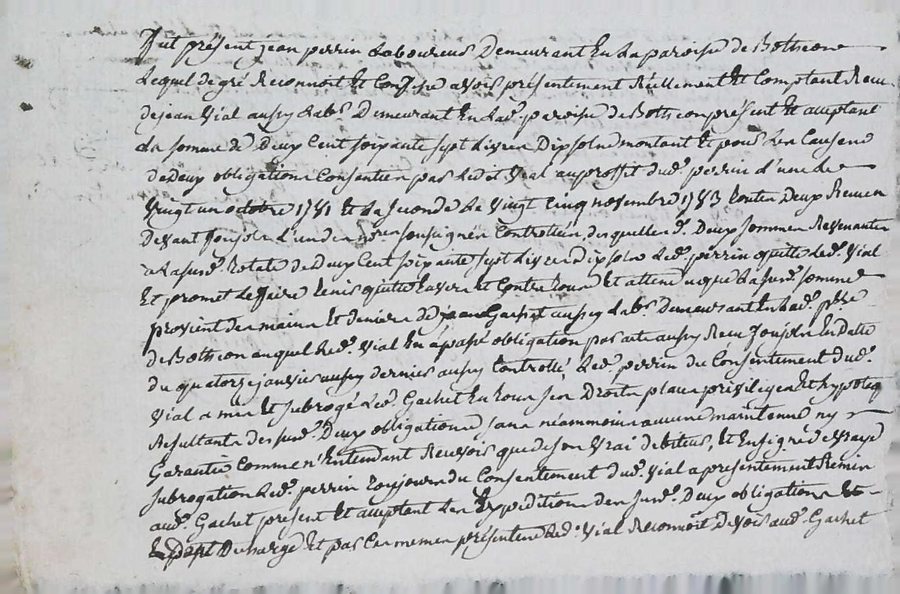 Fut présent jean perrin Laboureur Demeurant En La paroisse de Botheon
Lequel de gré Reconnoit Et Confesse avoir présentement Réellement Et Comptant Receu
de jean Vial aussy Labr. Demeurant En Lad. paroisse de Botheon présent Et acceptant
La somme de Deux Cent soixante sept Livres Dix sols montant Et pour Les Causes
de Deux obligations Consenties par Ledit Vial au proffit dud. perrin L'une Le
Vingt un octobre 1751 Et La seconde Le Vingt Cinq novembre 1753 toutes Deux Receues
Devant L'un des nres soussignés Controllées, desquelles d. Deux sommes Revenantes
a La susd. totale de Deux Cent soixante sept Livres Dix sols Led. perrin quitte Led. Vial
Et promet Le ffaire tenir quitte Envers Et Contre tous Et attendu que La susd. somme
provient des mains Et deniers de jean Gachet aussy Labr. Demeurant En Lad. psse
de Botheon auquel Led. Vial En a passé obligation par acte aussy Receu En Datte
du quatorze janvier aussy dernier aussy Controllé, Led. perrin du Consentement dud.
Vial a mis Et subrogé Led. Gachet En tous ses Droits place privileges Et hypoteq
Resultants des susd. Deux obligations, sans néammoins aucune maintenue ny
Garantie Comme n'Entendant Recevoir que de son Vrai debiteur, Et En signe de Vraye
subrogation Led. perrin toujours du Consentement dud. Vial a présentement Remis
aud. Gachet présent Et acceptant Les Expeditions des susd. Deux obligations Et
Decharge Et par Ces mesmes présentes Led. Vial Reconnoit Devoir aud. Gachet